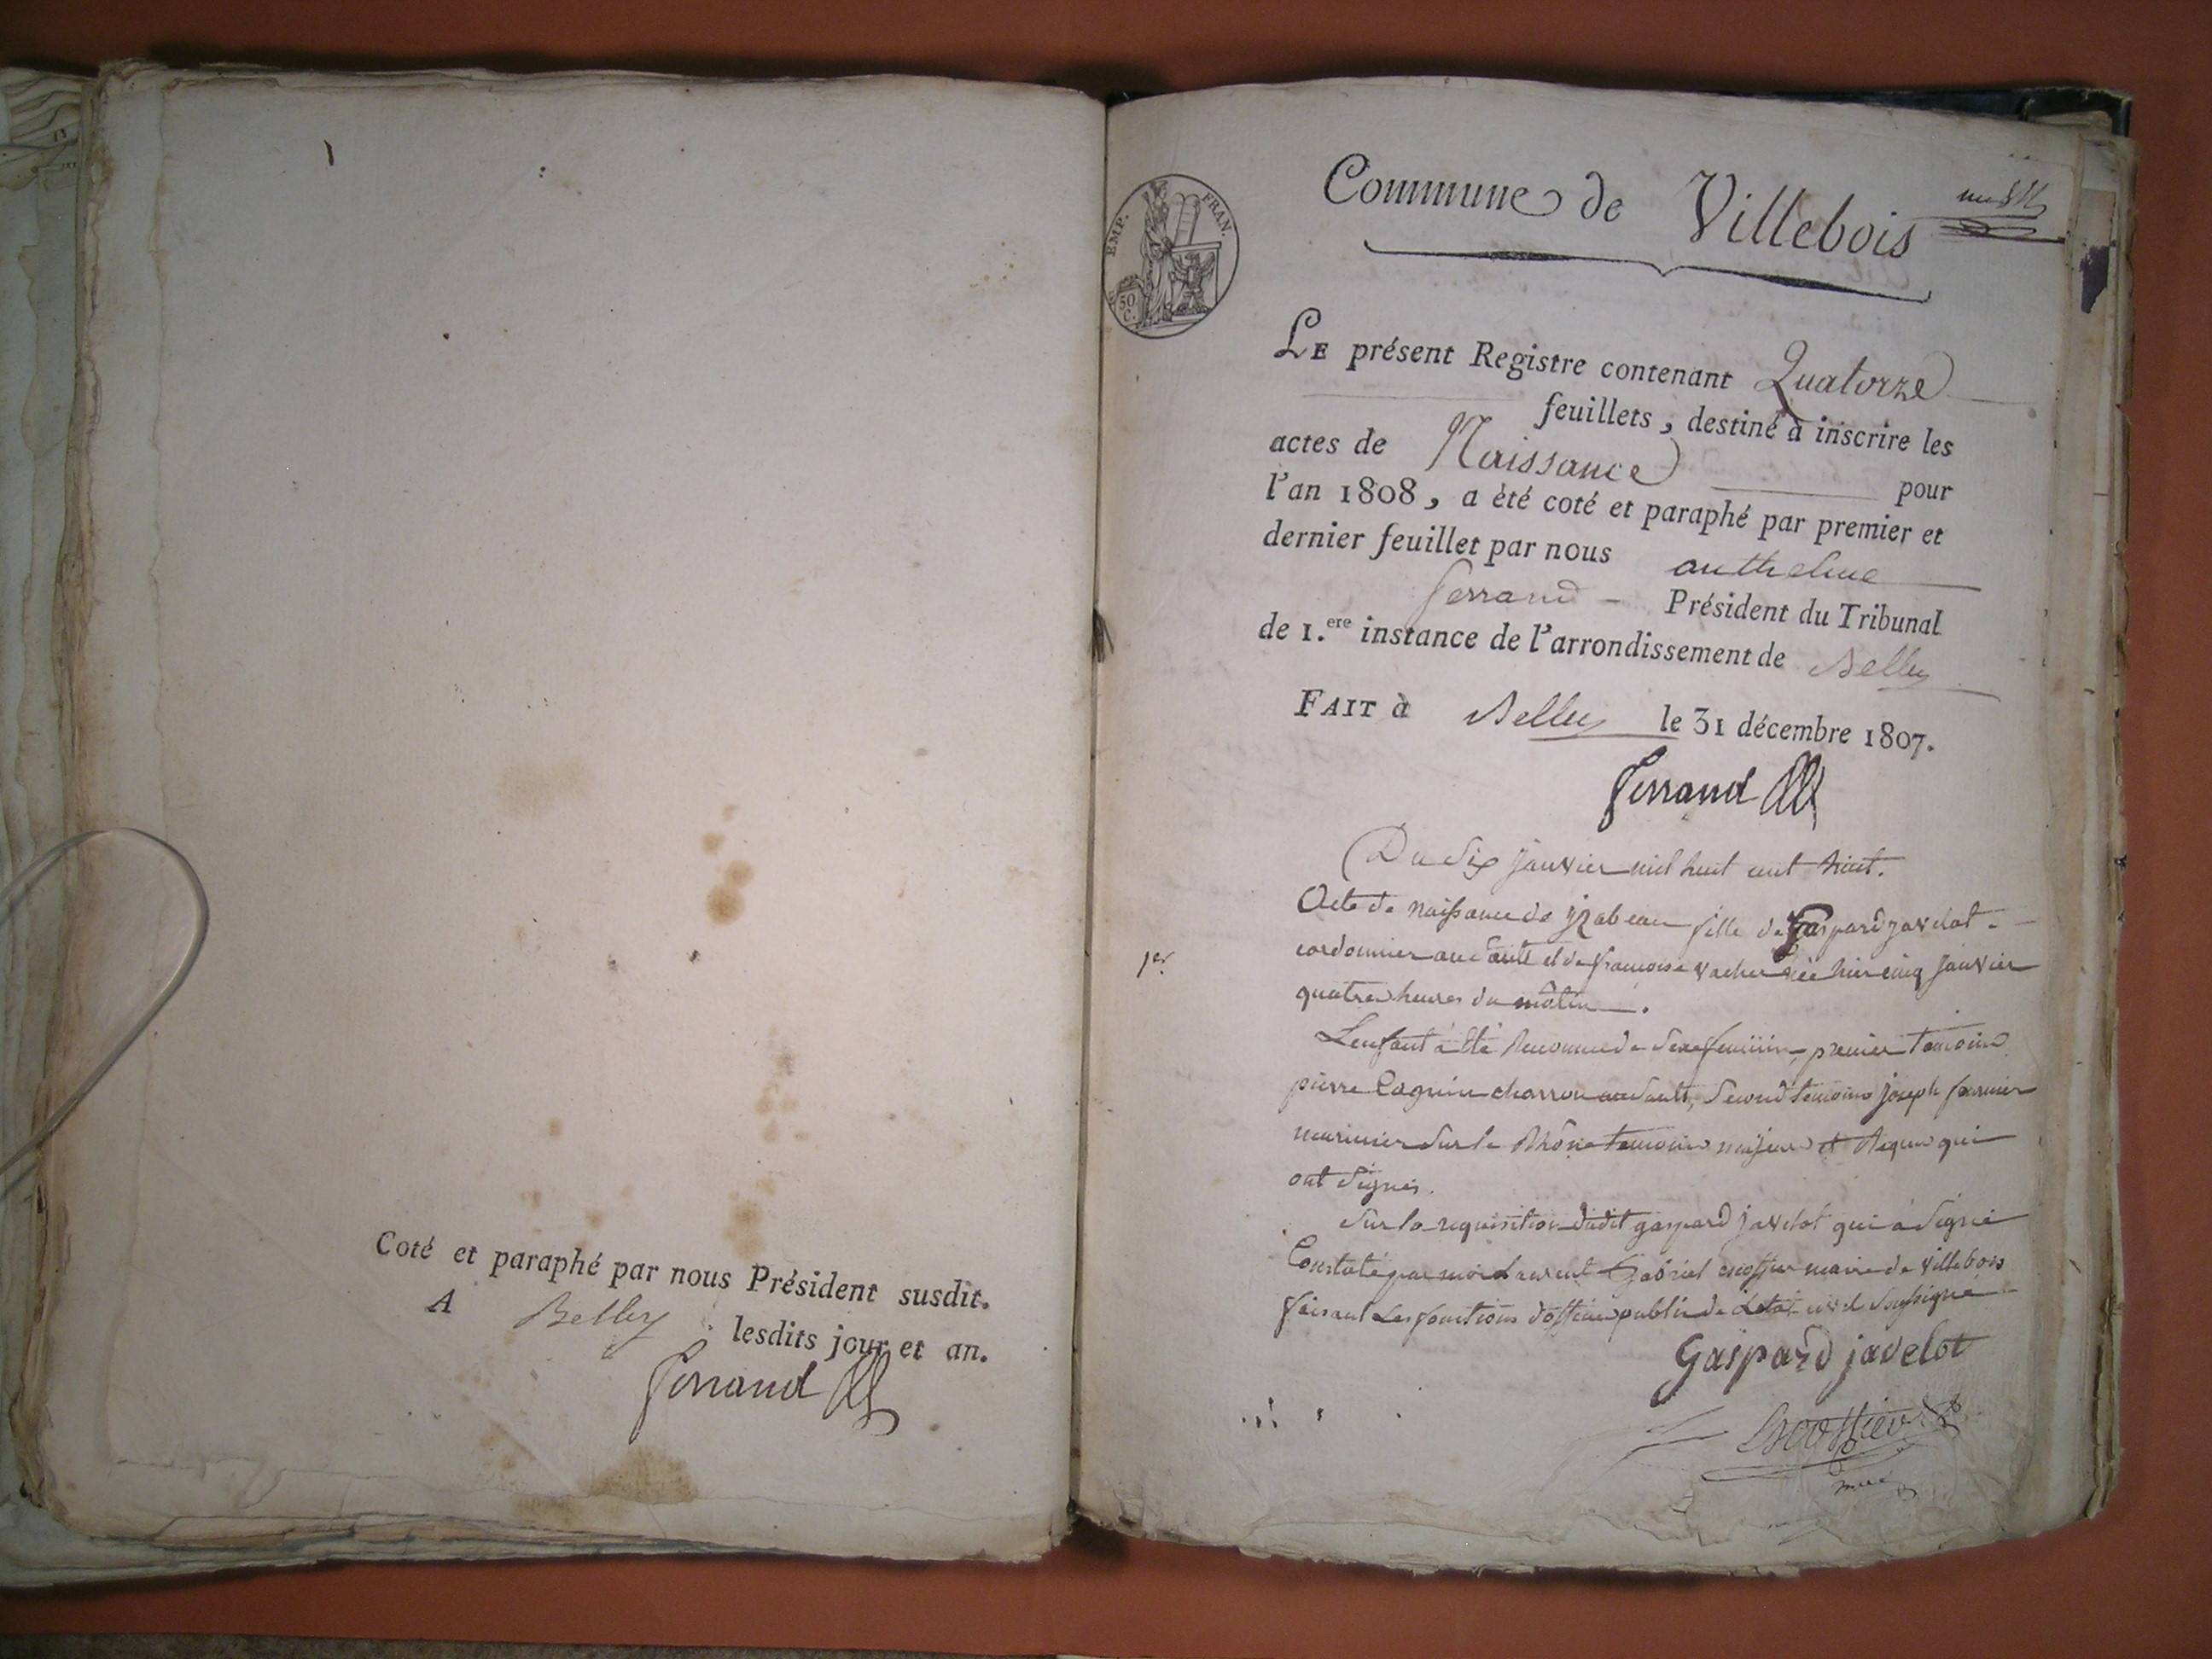 Coté et paraphé par nous Président susdit.
A Belley lesdits jour et an.
Ferrand
EMP. FRAN.
50 C.
Commune de Villebois
LE présent Registre contenant Quatorze
feuillets, destiné à inscrire les
actes de Naissance pour
l'an 1808, a été coté et paraphé par premier et
dernier feuillet par nous anthelme
ferrand Président du Tribunal
de 1.ere instance de l'arrondissement de Belley
FAIT à Belley le 31 décembre 1807.
Ferrand
Du Six Janvier mil huit cent huit.
1er
Acte de naissance de jzabeau fille de Gaspard javelot
cordonnier au Sault et de françoise vacher née hier cinq Janvier
quatre heures du matin.
L'enfant à été Reconnu de Sexe feminin, premier temoins
pierre charron au Sault, Second temoins Joseph
marinier Sur le Rhône temoins majeurs et Requis qui
ont Signés.
Sur la requisition dudit gaspard javelot qui à Signé
Constaté par moi Laurent Gabriel escoffier maire de villebois
faisant les fonctions d'officier public de L'etat civil Soussigné
Gaspard javelot
Escoffier